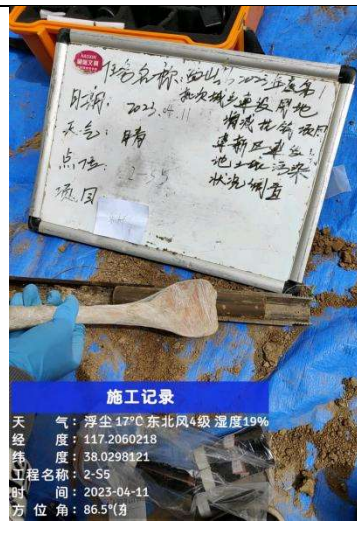 任务名称:盐山县2023年度第1
批次城乡建设用地
日期:2023.04.11
增减挂钩项目
天气:晴
点位:2-S5
地土壤污染
状况调查
项目
施工记录
天 气:浮尘 17℃ 东北风4级 湿度19%
经 度:117.2060218
纬 度:38.0298121
工程名称:2-S5
时 间:2023-04-11
方 位 角:86.5°(东